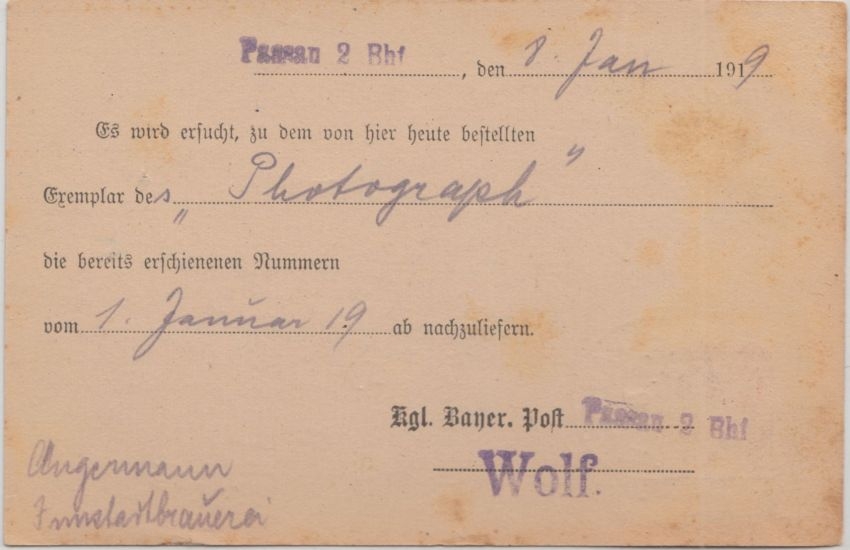 Passau 2 Bhf, den 8. Jan 1919
Es wird ersucht, zu dem von hier heute bestellten
Exemplar des „Photograph"
die bereits erschienenen Nummern
vom 1. Januar 19. ab nachzuliefern.
Kgl. Bayer. Post Passau 2 Bhf
Wolf.
Angermann
Innstadtbrauerei